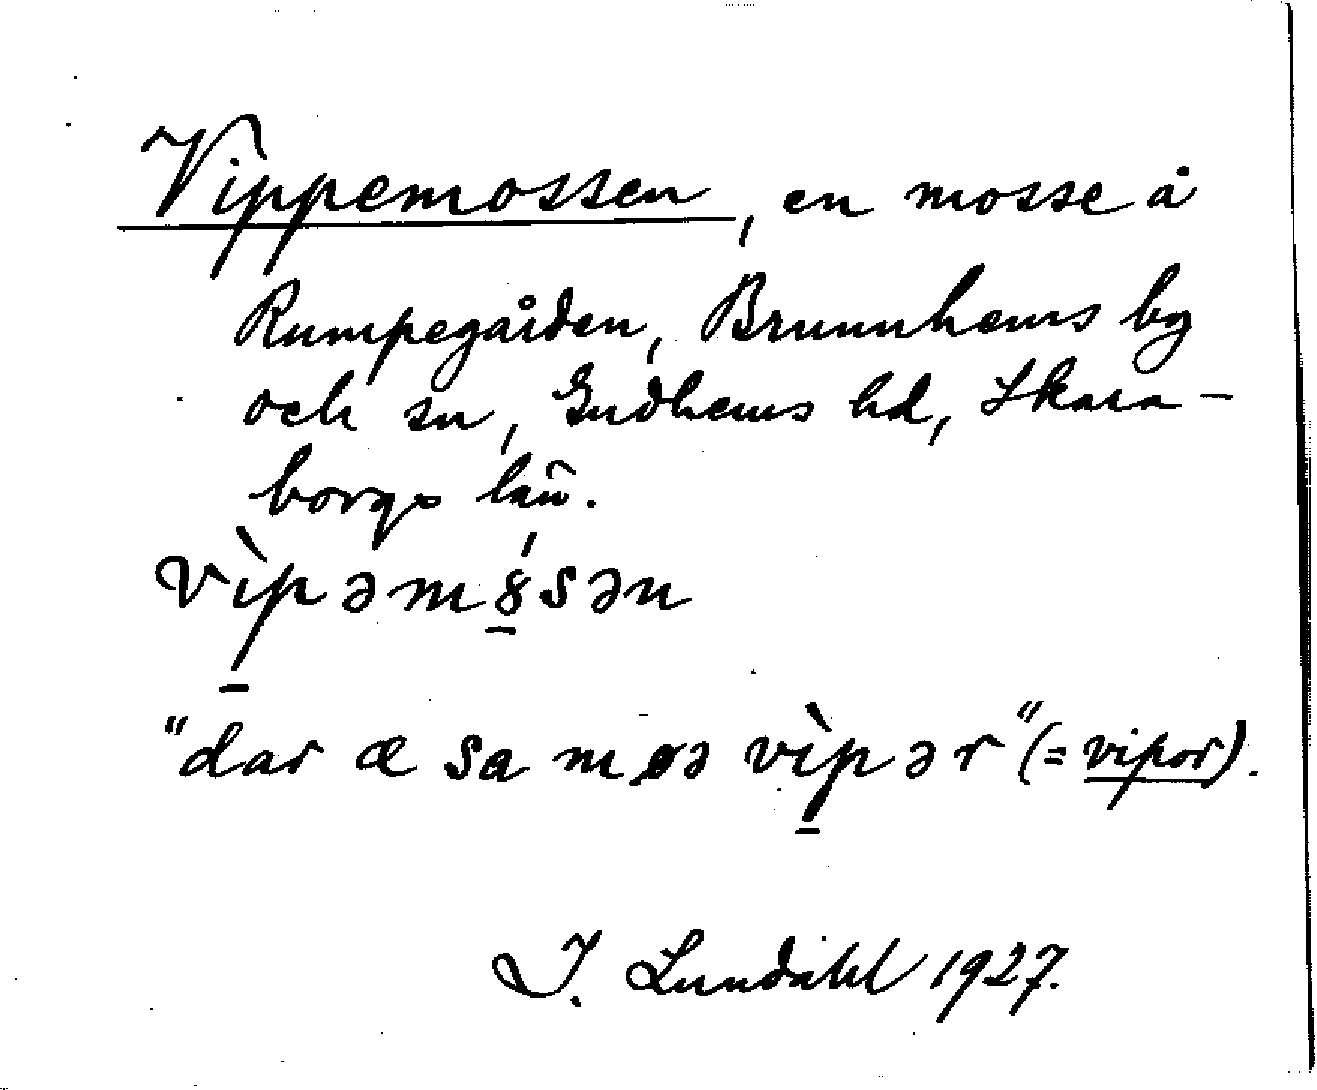 Vippemossen, en mosse å
Rumpegården, Brunnhems by
och sn, Gudhems hd, Skara-
borgs län.
vìpəm8́sən
"dar æ sa møə vìpər" (= vipor).
I. Lundahl 1927.